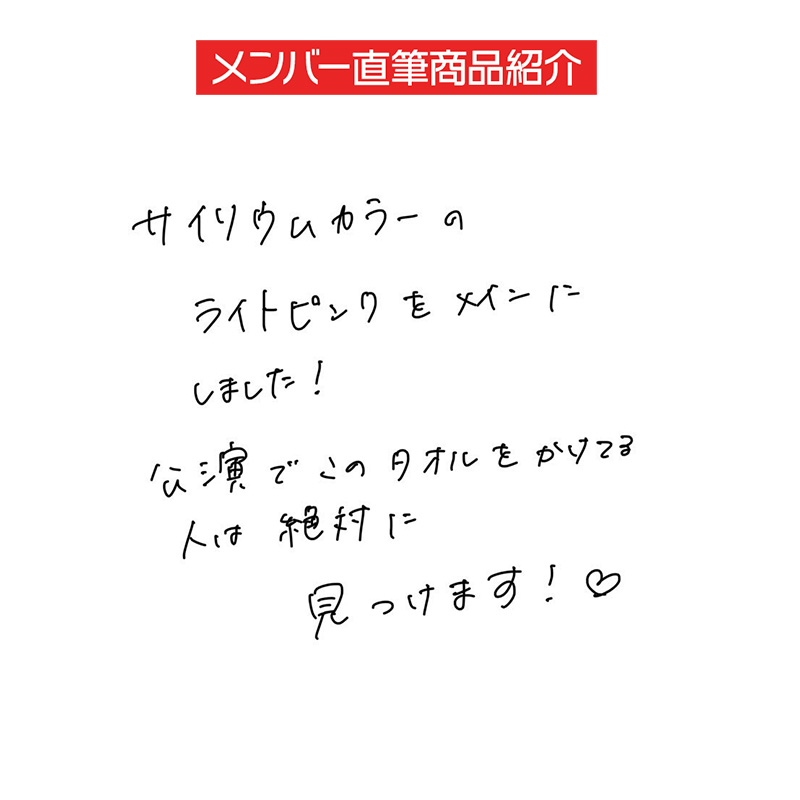 メンバー直筆商品紹介
サイリウムカラーの
ライトピンクをメインに
しました!
公演でこのタオルをかけてる
人は絶対に
見つけます!♡